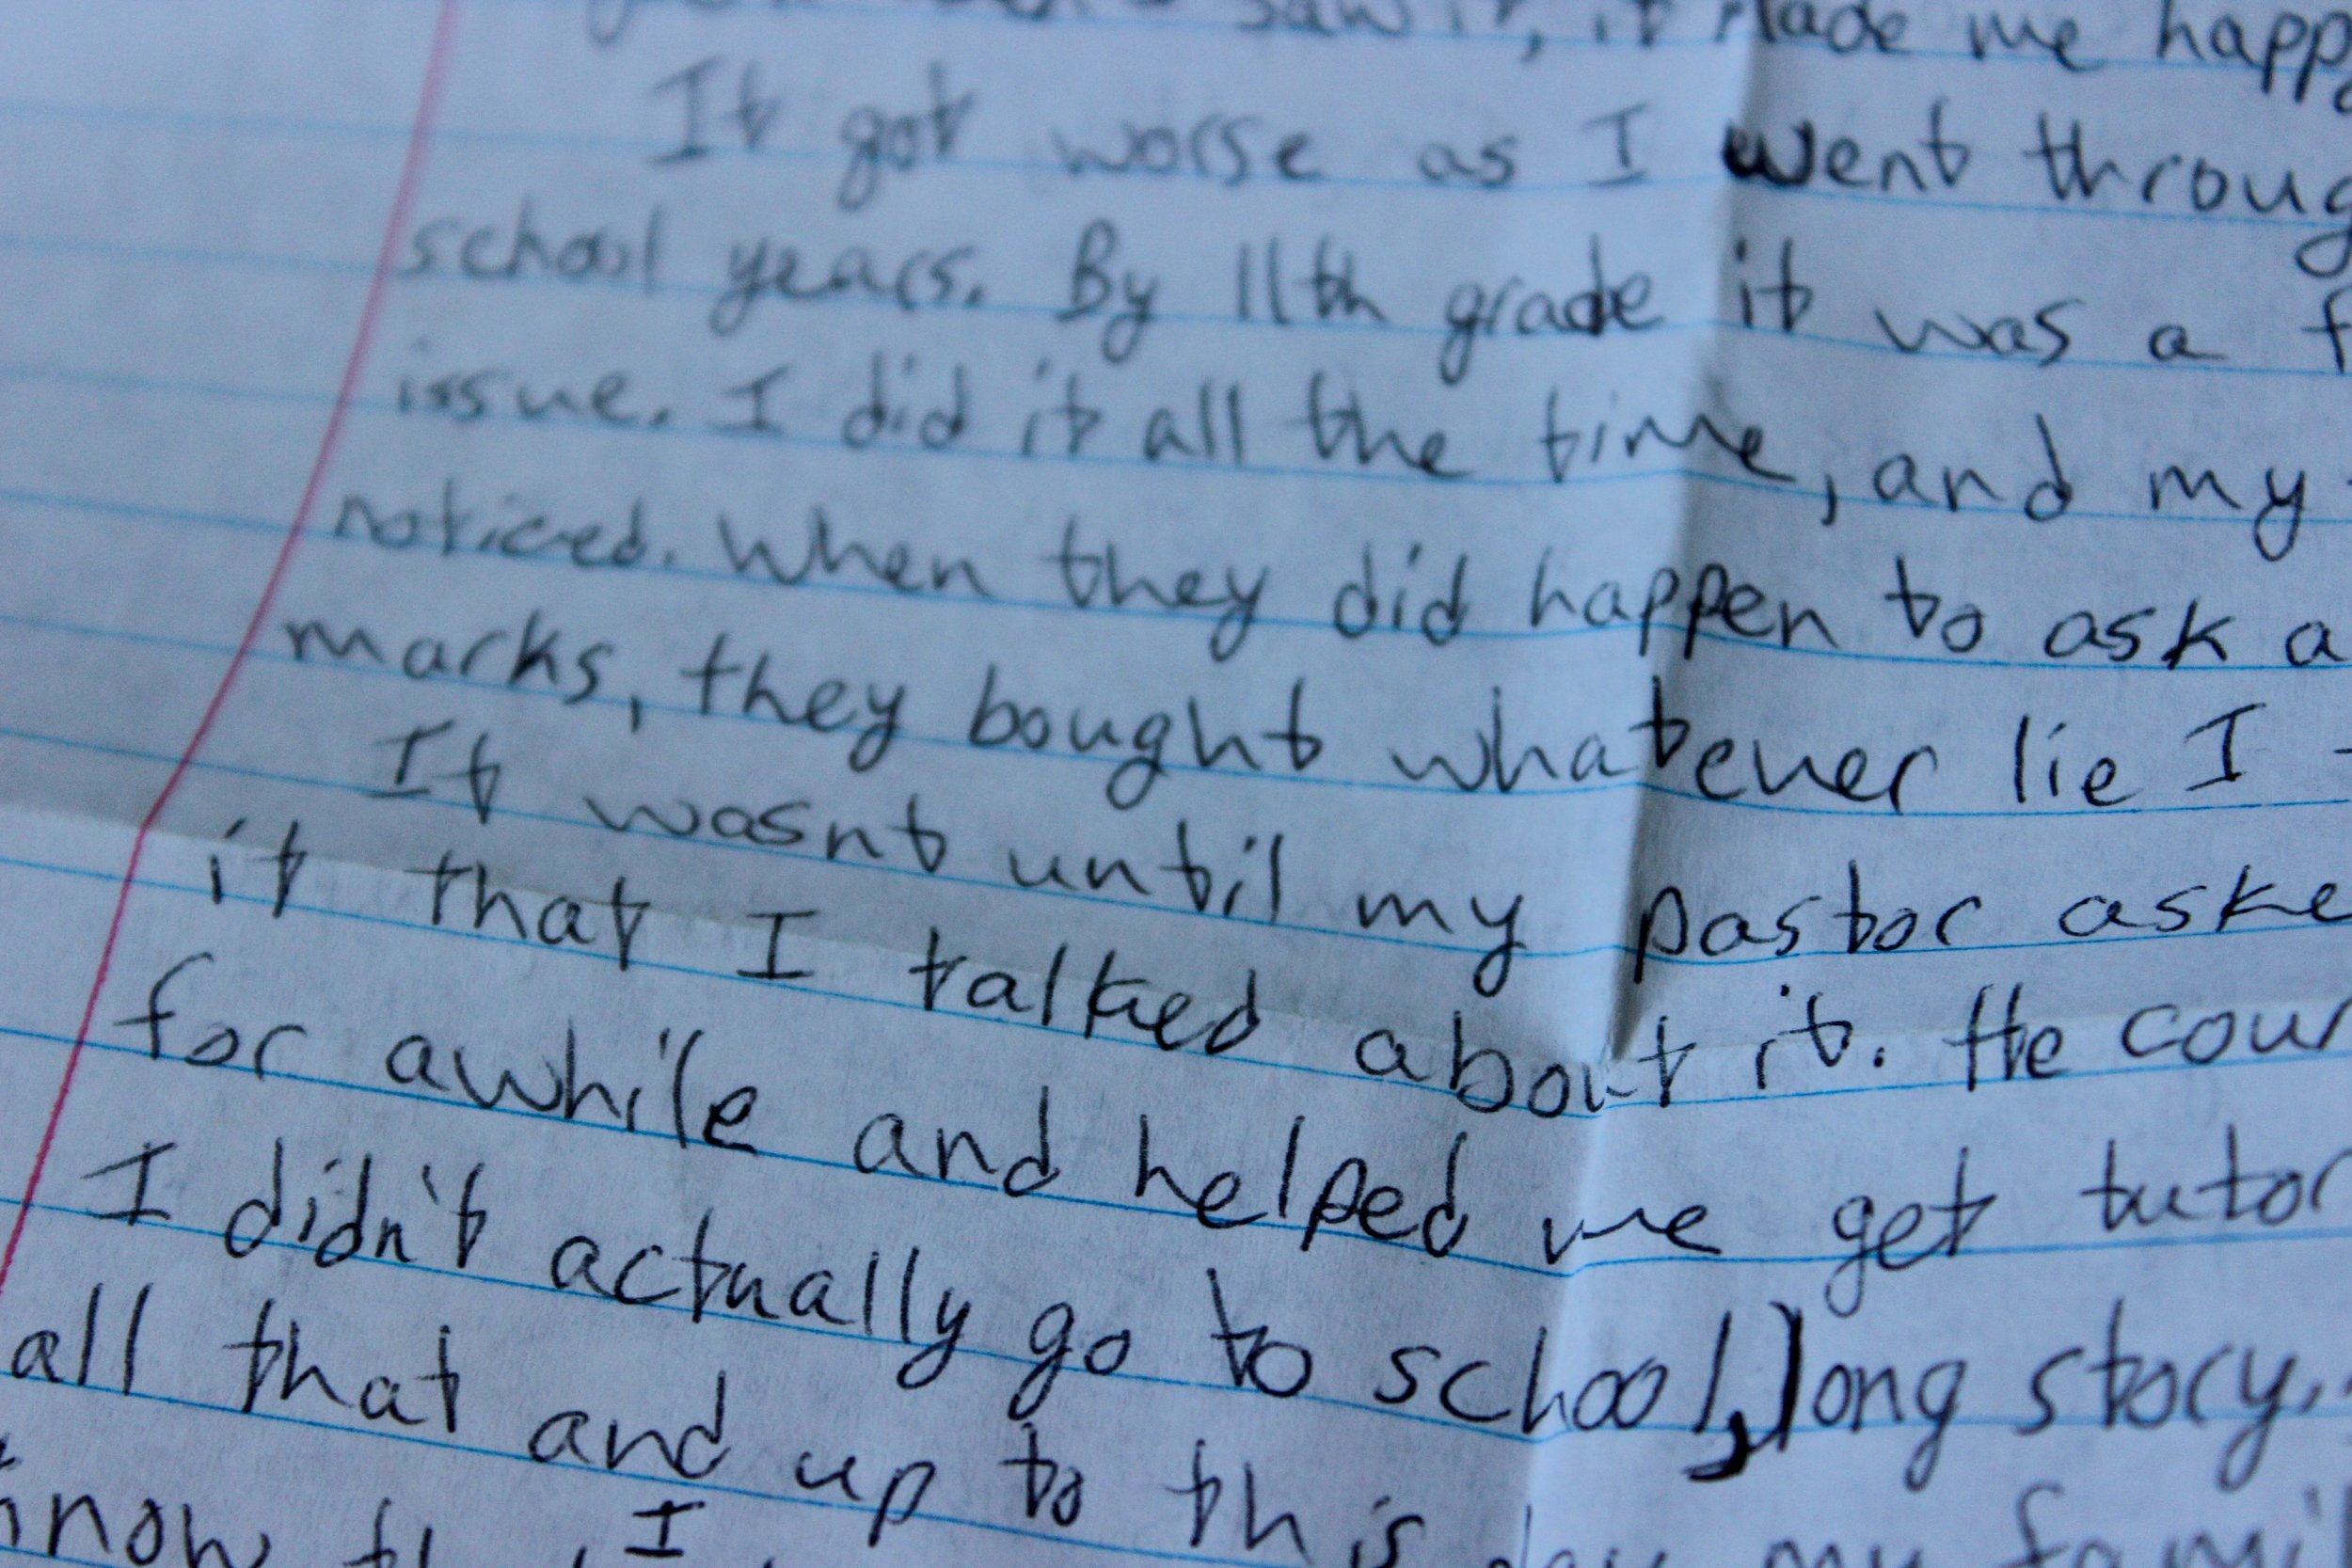 saw it, it made me happ
It got worse as I went throug
school years. By 11th grade it was a f
issue. I did it all the time, and my
noticed. When they did happen to ask a
marks, they bought whatever lie I
It wasnt until my pastor aske
it that I talked about it. He coun
for awhile and helped me get tutor
I didn't actually go to school, long story.
all that and up to this day my famil
know I